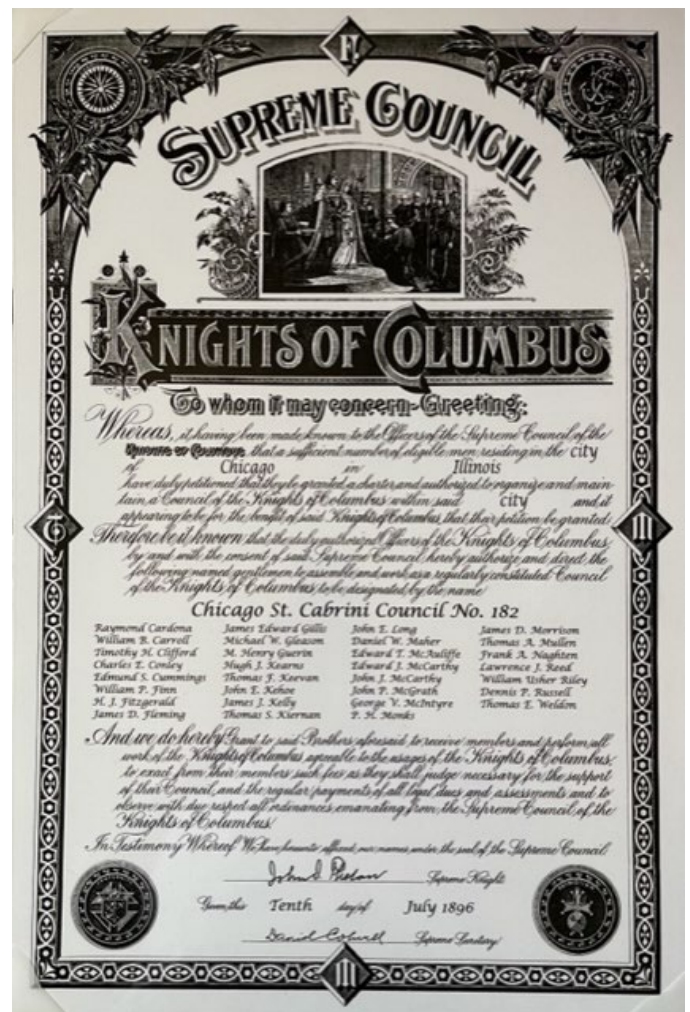 SUPREME COUNCIL
KNIGHTS OF COLUMBUS
To whom it may concern-Greeting:
Whereas, it having been made known to the Officers of the Supreme Council of the
Knights of Columbus that a sufficient number of eligible men, residing in the city
of Chicago in Illinois
have duly petitioned that they be granted a charter and authorized to organize and main
tain, a Council of the Knights of Columbus within said city and it
appearing to be for the benefit of said Knights of Columbus, that their petition be granted
Therefore be it known that the duly authorized Officers of the Knights of Columbus
by and with the consent of said Supreme Council hereby authorize and direct the
following named gentlemen to assemble and work as a regularly constituted Council
of the Knights of Columbus to be designated by the name
Chicago St. Cabrini Council No. 182
Raymond Cardona James Edward Gillis John E. Long James D. Morrison
William B. Carroll Michael W. Gleason Daniel W. Maher Thomas A. Mullen
Timothy H. Clifford M. Henry Guerin Edward T. McAuliffe Frank A. Naghten
Charles E. Conley Hugh J. Kearns Edward J. McCarthy Lawrence J. Reed
Edmund S. Cummings Thomas F. Keevan John J. McCarthy William Usher Riley
William P. Finn John E. Kehoe John P. McGrath Dennis P. Russell
H. J. Fitzgerald James J. Kelly George V. McIntyre Thomas E. Weldon
James D. Fleming Thomas S. Kiernan P. H. Monks
And we do hereby Grant to said Brothers aforesaid to receive members and perform all
work of the Knights of Columbus agreeable to the usages of the Knights of Columbus,
to exact from their members such fees as they shall judge necessary for the support
of their Council, and the regular payments of all legal dues and assessments and to
observe with due respect all ordinances emanating from, the Supreme Council, of the
Knights of Columbus.
In Testimony Whereof We have hereunto affixed our names under the seal of the Supreme Council.
John J. Phelan Supreme Knight
Given this Tenth day of July 1896
Daniel Colwell Supreme Secretary